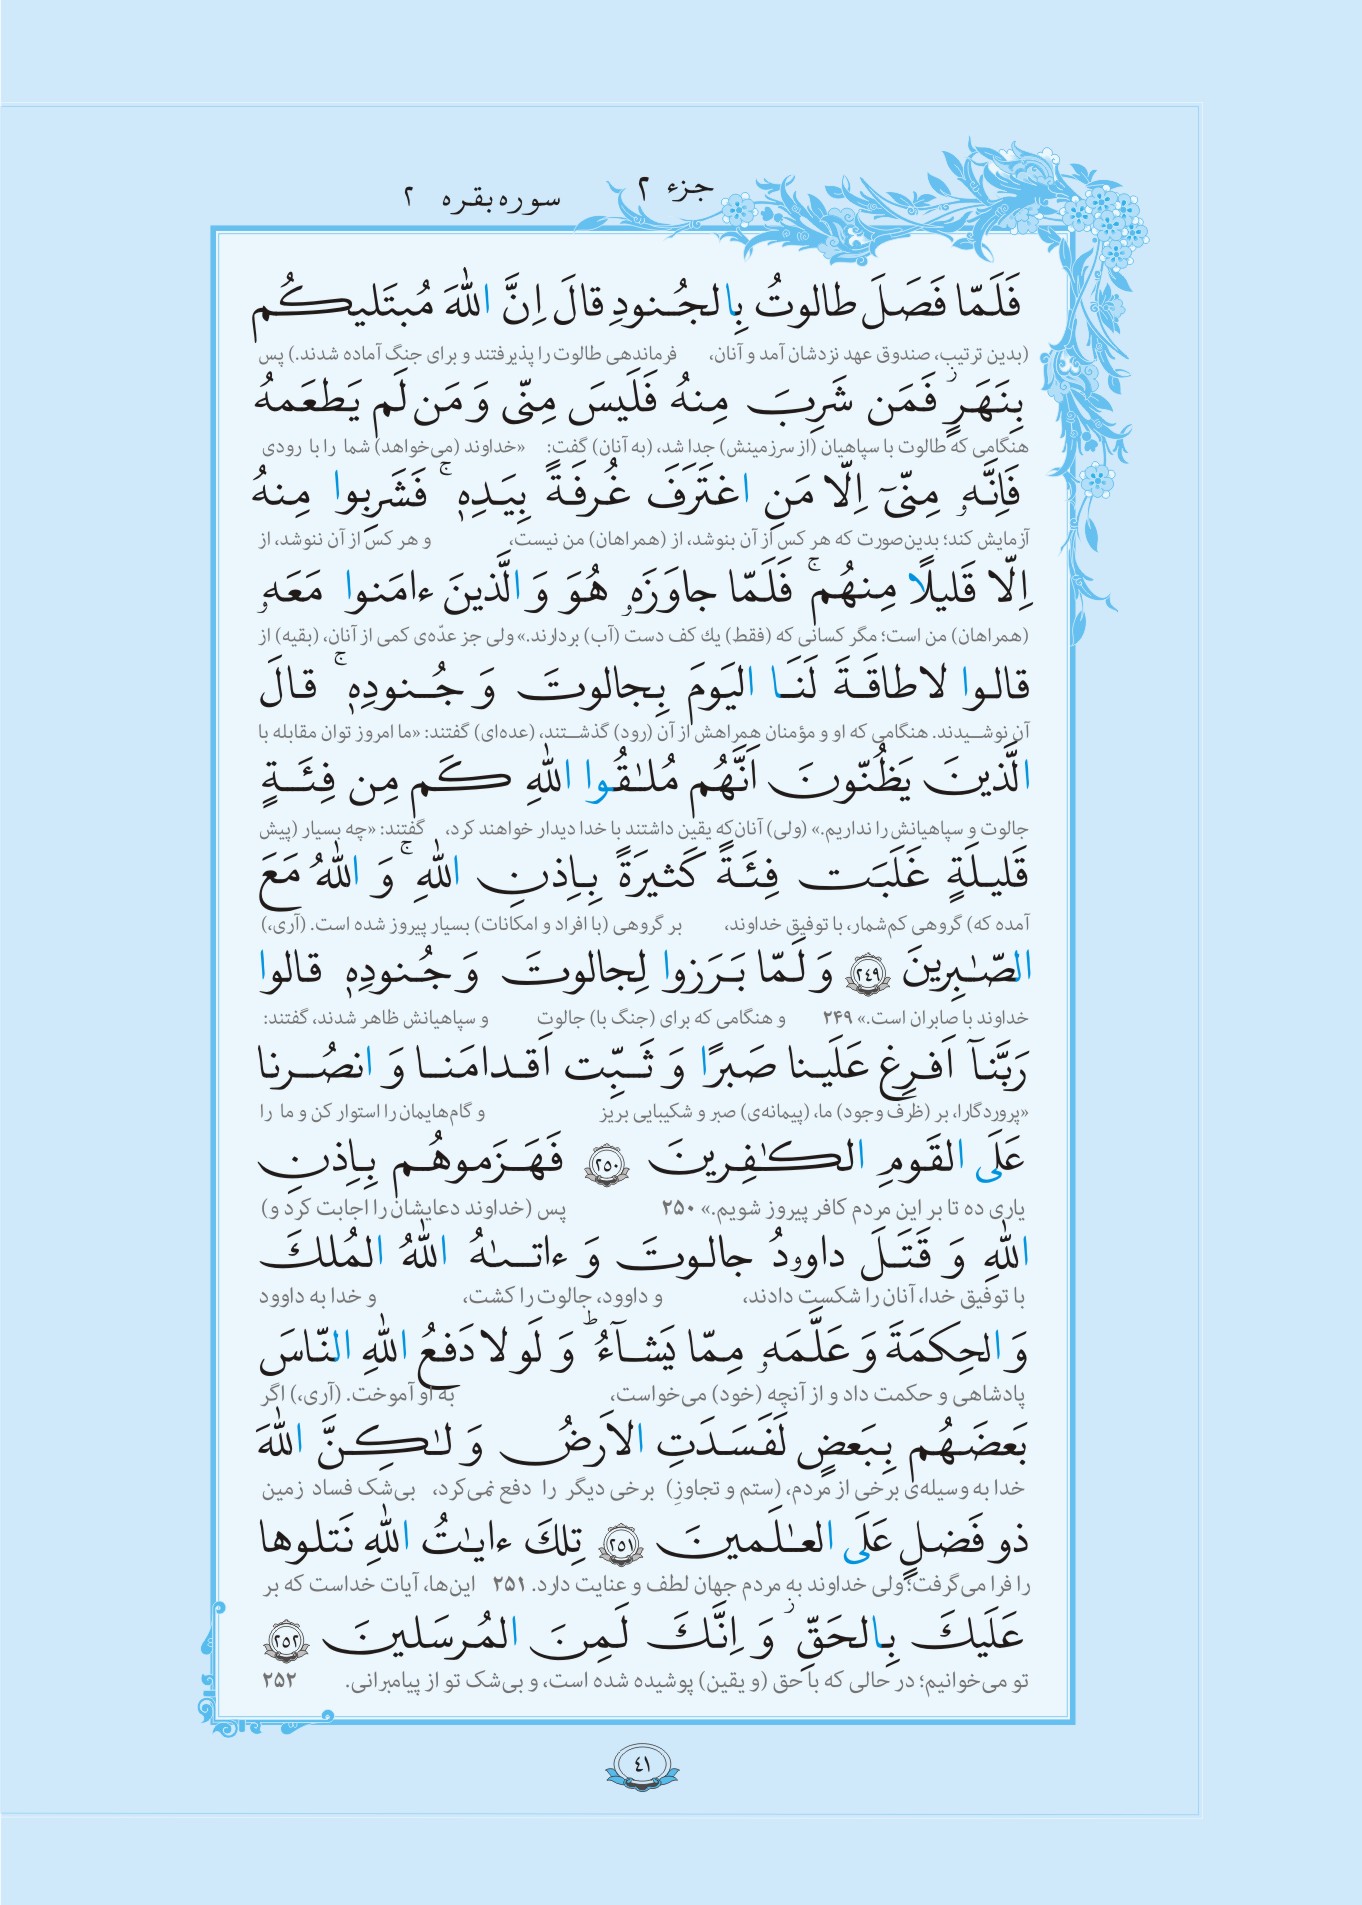 جزء ۲
سوره بقره ۲
فَلَمّا فَصَلَ طالوتُ بِالجُنودِ قالَ اِنَّ اللّٰهَ مُبتَليكُم
(بدین ترتیب، صندوق عهد نزدشان آمد و آنان، فرماندهی طالوت را پذیرفتند و برای جنگ آماده شدند.) پس
بِنَهَرٍ ۫ فَمَن شَرِبَ مِنهُ فَلَيسَ مِنّي وَ مَن لَم يَطعَمهُ
هنگامی که طالوت با سپاهیان (از سرزمینش) جدا شد، (به آنان) گفت: «خداوند (می‌خواهد) شما را با رودی
فَاِنَّهٗ مِنّيٓ اِلّا مَنِ اغتَرَفَ غُرفَةً بِيَدِهٖ ۚ فَشَرِبوا مِنهُ
آزمایش کند؛ بدین‌صورت که هر کس از آن بنوشد، از (همراهان) من نیست، و هر کس از آن ننوشد، از
اِلّا قَليلًا مِنهُم ۚ فَلَمّا جاوَزَهٗ هُوَ وَ الَّذينَ ءامَنوا مَعَهٗ
(همراهان) من است؛ مگر کسانی که (فقط) یك کف دست (آب) بردارند.» ولی جز عدّه‌ی کمی از آنان، (بقیه) از
قالوا لا طاقَةَ لَنَا اليَومَ بِجالوتَ وَ جُنودِهٖ ۚ قالَ
آن نوشیدند. هنگامی که او و مؤمنان همراهش از آن (رود) گذشتند، (عده‌ای) گفتند: «ما امروز توان مقابله با
الَّذينَ يَظُنّونَ اَنَّهُم مُلٰقُوا اللّٰهِ كَم مِن فِئَةٍ
جالوت و سپاهیانش را نداریم.» (ولی) آنان‌که یقین داشتند با خدا دیدار خواهند کرد، گفتند: «چه بسیار (پیش
قَليلَةٍ غَلَبَت فِئَةً كَثيرَةً بِاِذنِ اللّٰهِ ۚ وَ اللّٰهُ مَعَ
آمده که) گروهی کم‌شمار، با توفیق خداوند، بر گروهی (با افراد و امکانات) بسیار پیروز شده است. (آری،)
الصّٰبِرينَ ﴿٢٤٩﴾ وَ لَمّا بَرَزوا لِجالوتَ وَ جُنودِهٖ قالوا
خداوند با صابران است.» ۲۴۹ و هنگامی که برای (جنگ با) جالوت و سپاهیانش ظاهر شدند، گفتند:
رَبَّنآ اَفرِغ عَلَينا صَبرًا وَ ثَبِّت اَقدامَنا وَ انصُرنا
«پروردگارا، بر (ظرف وجود) ما، (پیمانه‌ی) صبر و شکیبایی بریز و گام‌هایمان را استوار کن و ما را
عَلَى القَومِ الكٰفِرينَ ﴿٢٥٠﴾ فَهَزَموهُم بِاِذنِ
یاری ده تا بر این مردم کافر پیروز شویم.» ۲۵۰ پس (خداوند دعایشان را اجابت کرد و)
اللّٰهِ وَ قَتَلَ داوۥدُ جالوتَ وَ ءاتىٰهُ اللّٰهُ المُلكَ
با توفیق خدا، آنان را شکست دادند، و داوود، جالوت را کشت، و خدا به داوود
وَ الحِكمَةَ وَ عَلَّمَهٗ مِمّا يَشآءُ ؕ وَ لَو لا دَفعُ اللّٰهِ النّاسَ
پادشاهی و حکمت داد و از آنچه (خود) می‌خواست، به او آموخت. (آری،) اگر
بَعضَهُم بِبَعضٍ لَفَسَدَتِ الاَرضُ وَ لٰكِنَّ اللّٰهَ
خدا به وسیله‌ی برخی از مردم، (ستم و تجاوز) برخی دیگر را دفع نمی‌کرد، بی‌شک فساد زمین
ذو فَضلٍ عَلَى العٰلَمينَ ﴿٢٥١﴾ تِلكَ ءايٰتُ اللّٰهِ نَتلوها
را فرا می‌گرفت؛ ولی خداوند به مردم جهان لطف و عنایت دارد. ۲۵۱ این‌ها، آیات خداست که بر
عَلَيكَ بِالحَقِّ ۫ وَ اِنَّكَ لَمِنَ المُرسَلينَ ﴿٢٥٢﴾
تو می‌خوانیم؛ در حالی که با حق (و یقین) پوشیده شده است، و بی‌شک تو از پیامبرانی. ۲۵۲
٤١